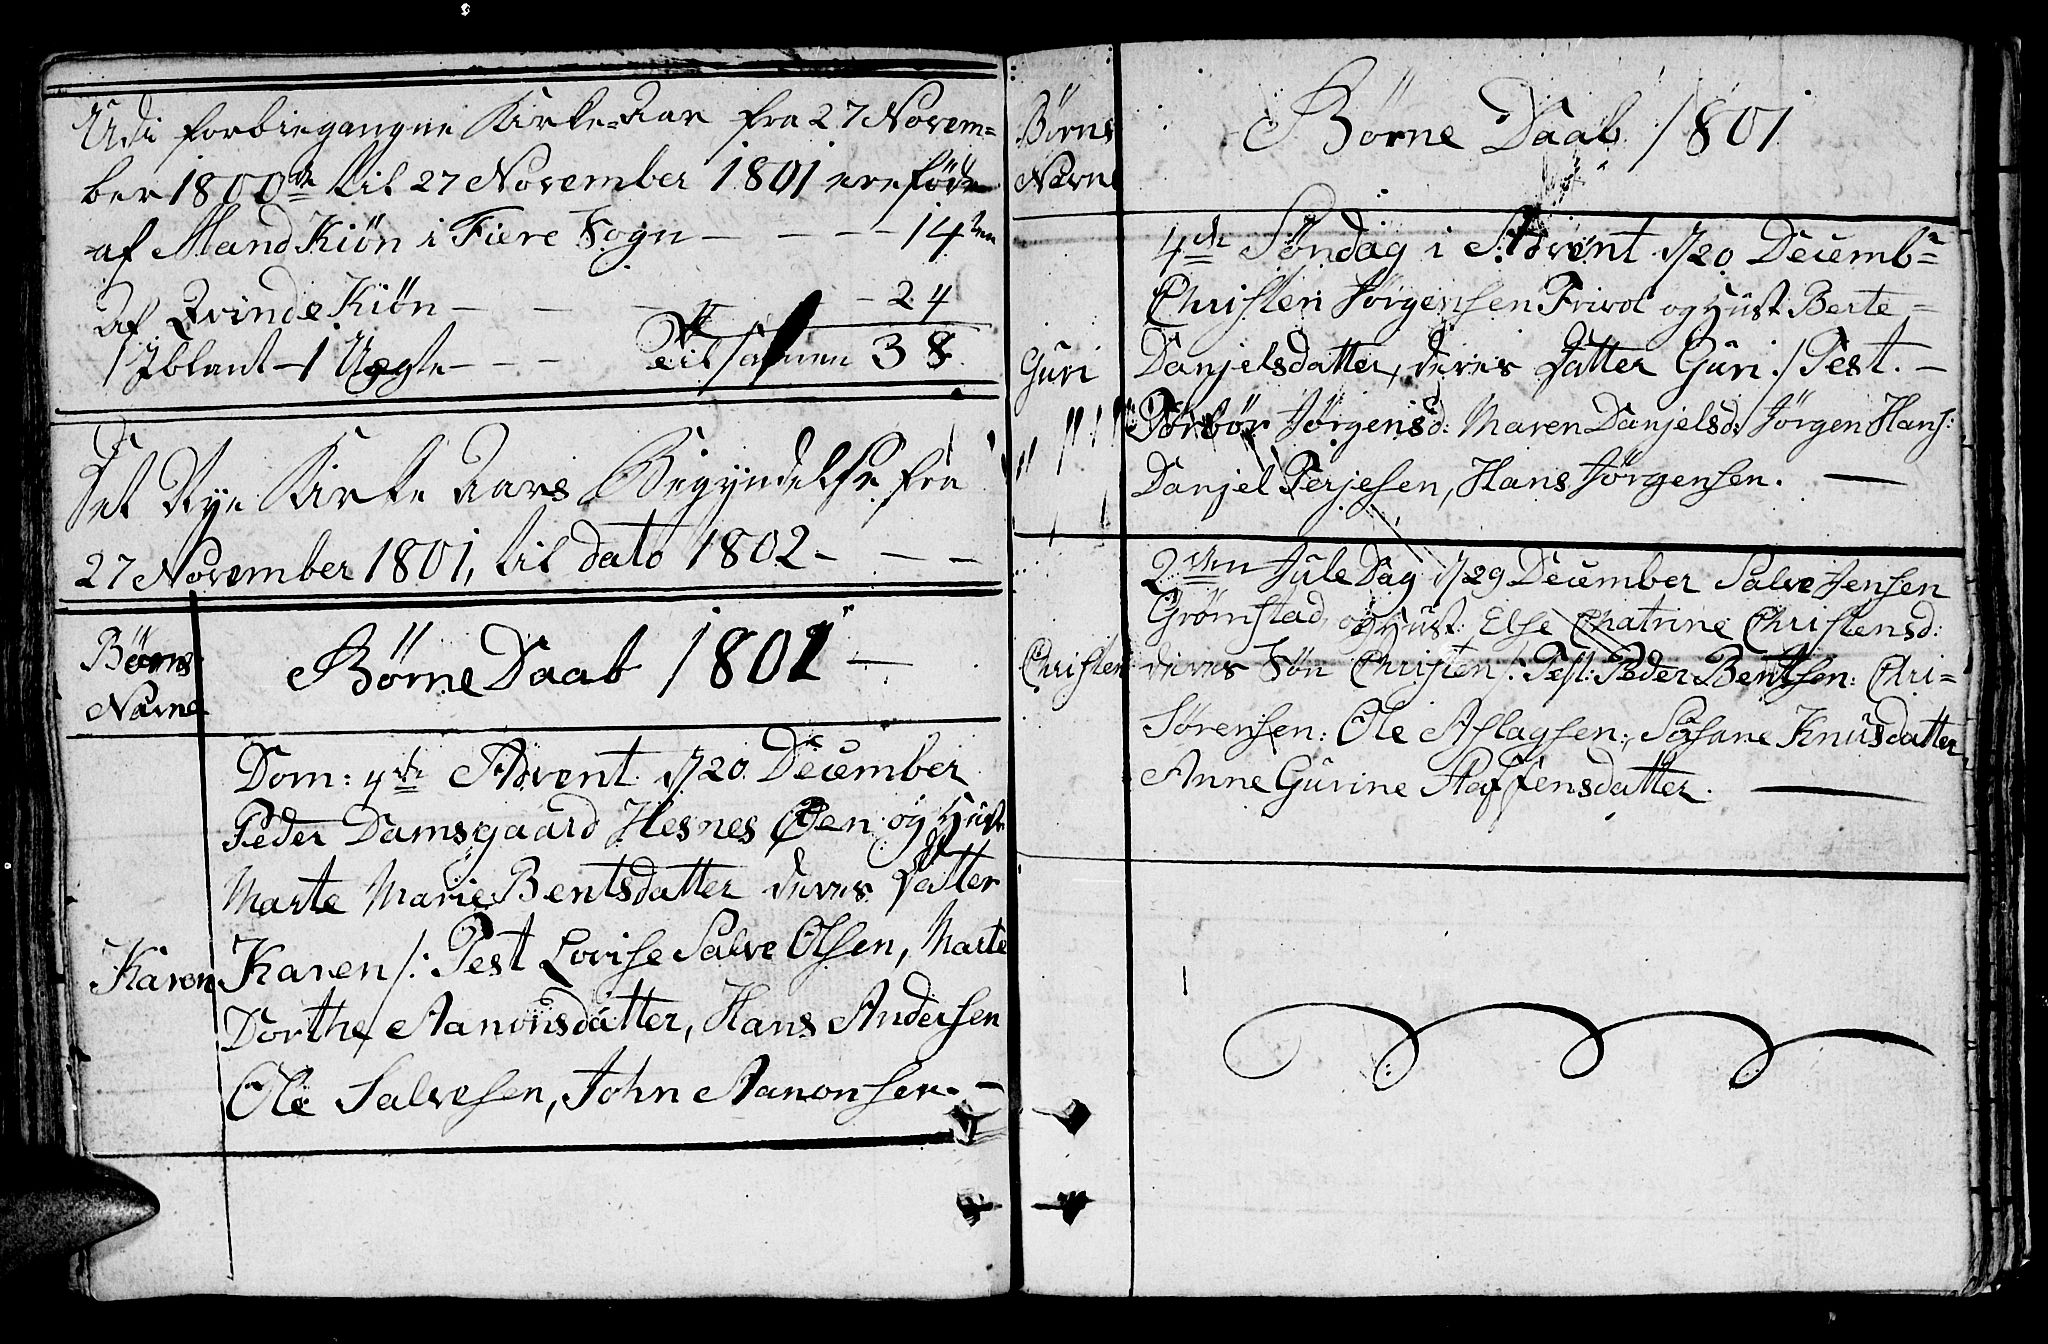 Udi forbiegangne Kirke-Aar fra 27 Novem=
ber 1800de til 27 November 1801 ere födte
af Mand Kiön i Fiere Sogn - - - - 14ten
af Qvinde Kiön - - - 24
Iblant - 1 Uægte - - - tilsammen 38
Det Nye Kirke Aars Begyndelse fra
27 November 1801, til dato 1802 - - -
Börns
Navne
Börne Daab 1801 -
Dom: 4de Advent d/20 December
Peder Damsgaard Hesnes Öen og Hust
Marte Marie Bentsdatter deres Datter
Karen
Karen /: Test Lovise Salve Olsen, Marte
Dorthe Aanonsdatter, Hans Andersen
Ole Salvesen, John Aanonsen. -
Börns
Navne
Börne Daab 1801
4de Söndag i Advent d/20 Decembr
Christen Jörgensen Frivol og Hust: Berte =
Guri
Danjelsdatter, deres Datter Guri /: Test. -
Torbör Jörgensd: Maren Danjelsd: Jörgen Hans:
Danjel Terjesen, Hans Jörgensen. -
2den Jule Dag d/29 December Salve Jensen
Grömstad og Hust: Else Chatrine Christensd:
Christen
deres Sön Christen /: Test: Peder Bentsen: Chri=
Sörensen: Ole Aslagsen: Sosane Knusdatter
Anne Gurine Staffensdatter. -